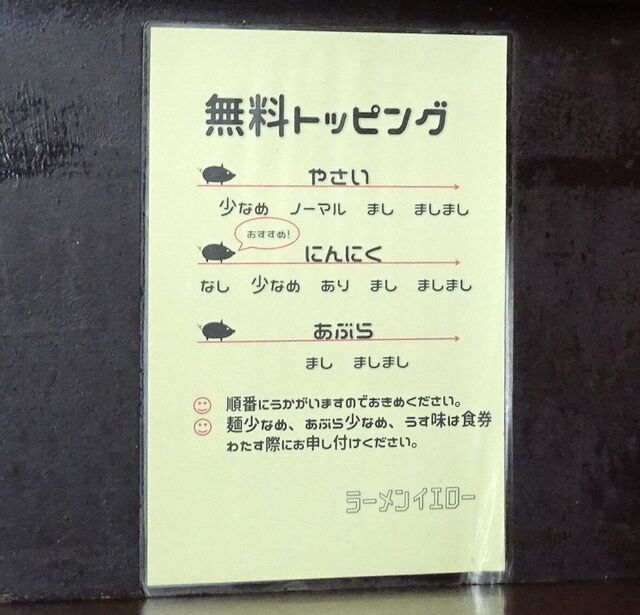 無料トッピング
やさい
少なめ ノーマル まし ましまし
おすすめ!
にんにく
なし 少なめ あり まし ましまし
あぶら
まし ましまし
順番にうかがいますのでおきめください。
麺少なめ、あぶら少なめ、うす味は食券
わたす際にお申し付けください。
ラーメンイエロー